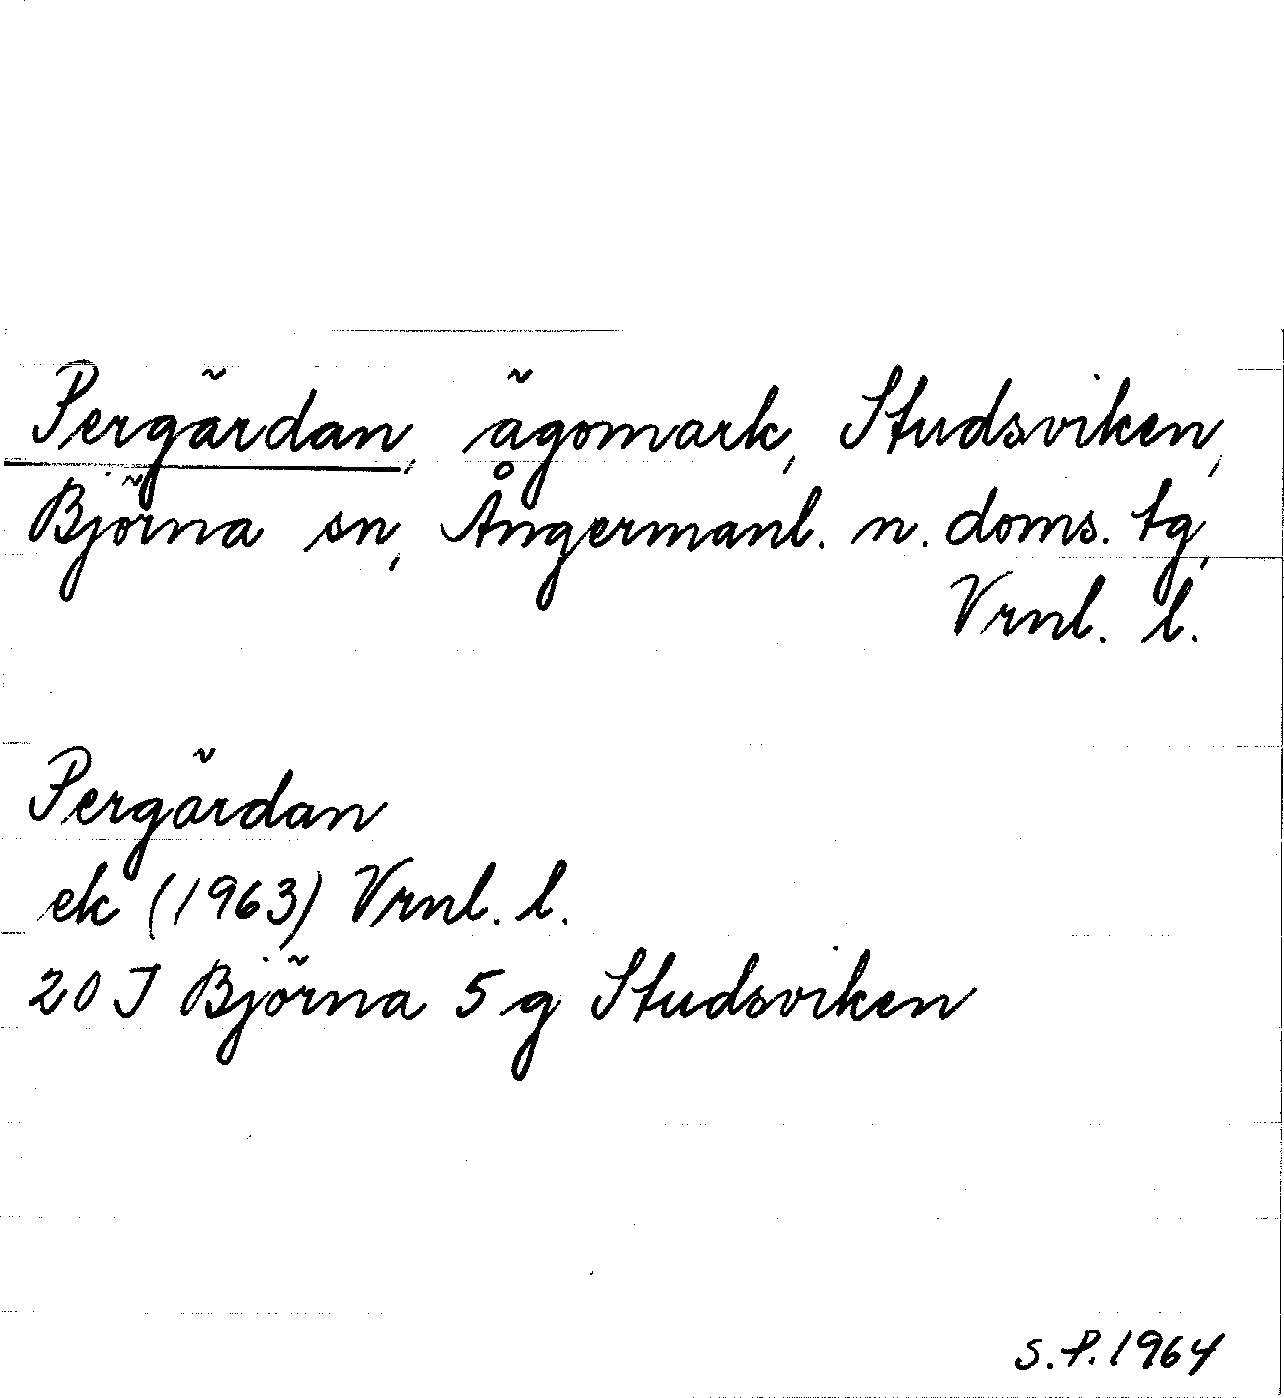 Pergärdan, ägomark, Studsviken,
Björna sn, Ångermanl. n. doms. tg,
Vrnl. l.
Pergärdan
ek (1963) Vrnl. l.
20 J Björna 5 g Studsviken
S.P. 1964